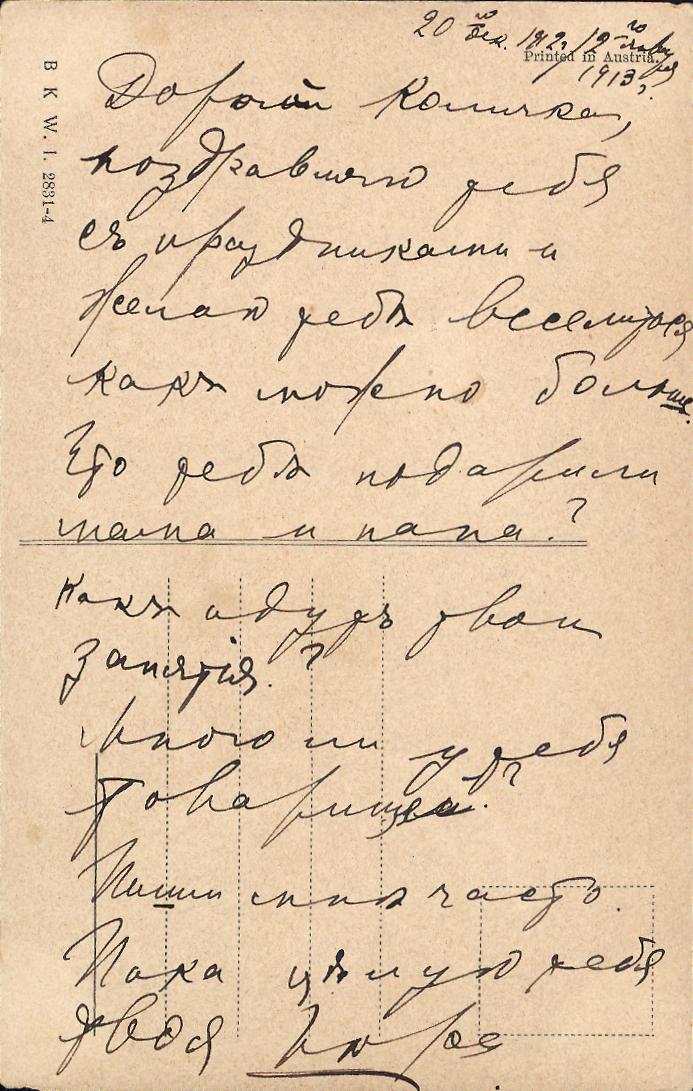 20го Дек. 1912 / 2го Января
1913 г.
Printed in Austria.
B. K. W. I. 2831-4
Дорогой Количка,
поздравляю тебя
съ праздниками и
желаю тебѣ веселиться
какъ можно больше.
Что тебѣ подарили
мама и папа?
Какъ идутъ твои
занятія?
Много ли у тебя
товарищей?
Пиши мнѣ часто.
Пока цѣлую тебя
твоя